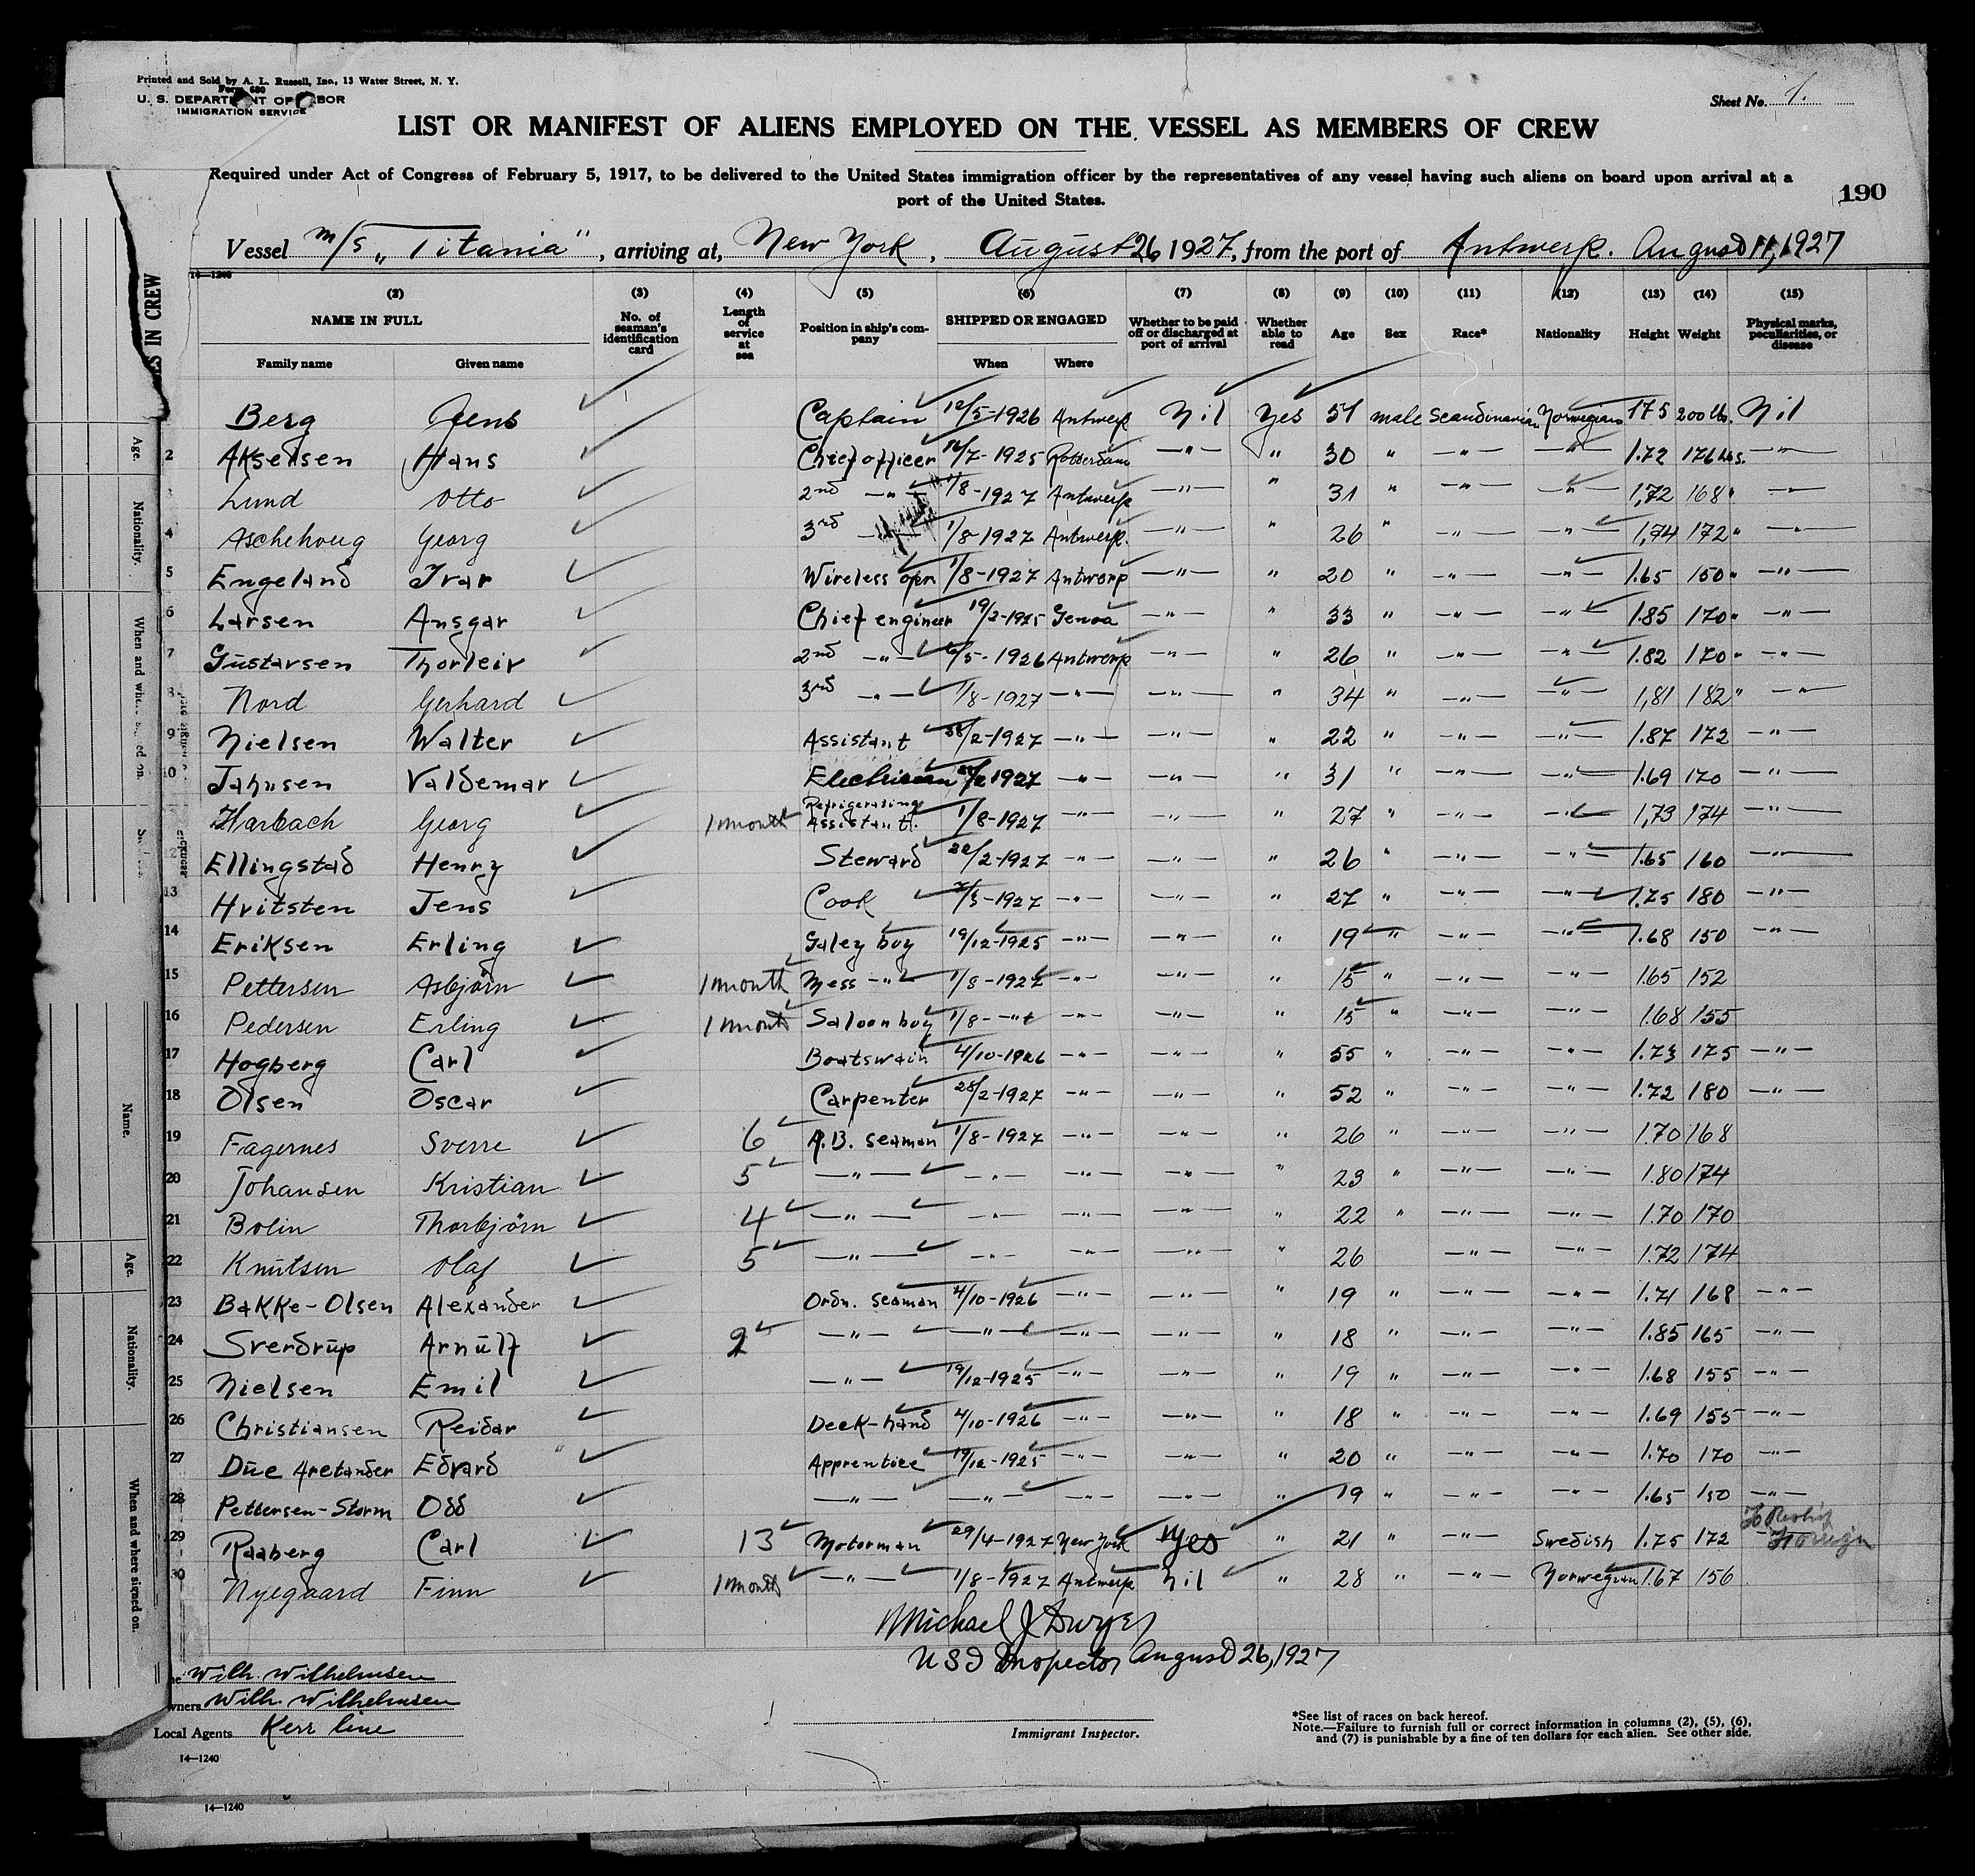 Printed and Sold by A. L. Russell, Inc., 13 Water Street, N. Y.
Form 680
U. S. DEPARTMENT OF LABOR
IMMIGRATION SERVICE
Sheet No. 1.
LIST OR MANIFEST OF ALIENS EMPLOYED ON THE VESSEL AS MEMBERS OF CREW
Required under Act of Congress of February 5, 1917, to be delivered to the United States immigration officer by the representatives of any vessel having such aliens on board upon arrival at a
port of the United States.
190
Vessel M/S „Titania", arriving at, New York, August 26 1927, from the port of Antwerp. August 11, 1927
14—1240
(2) (3) (4) (5) (6) (7) (8) (9) (10) (11) (12) (13) (14) (15)
NAME IN FULL No. of seaman's identification card Length of service at sea Position in ship's company SHIPPED OR ENGAGED Whether to be paid off or discharged at port of arrival Whether able to read Age Sex Race* Nationality Height Weight Physical marks, peculiarities, or disease
Family name Given name When Where
Berg Jens Captain 12/5-1926 Antwerp Nil Yes 51 male Scandinavian Norwegian 175 200 lbs. Nil
2 Akselsen Hans Chief officer 16/7-1925 Rotterdam —"— " 30 " —"— —"— 1.72 176 lbs. —"—
Lund Otto 2nd —"— 1/8-1927 Antwerp —"— " 31 " —"— —"— 1,72 168 " —"—
4 Aschehoug Georg 3rd —"— 1/8-1927 Antwerp. —"— " 26 " —"— —"— 1,74 172 " —"—
5 Engeland Ivar Wireless oper 1/8-1927 Antwerp —"— " 20 " —"— —"— 1.65 150 " —"—
6 Larsen Ansgar Chief engineer 19/2-1925 Genoa —"— " 33 " —"— —"— 1.85 170 " —"—
7 Gustavsen Thorleiv 2nd —"— /5-1926 Antwerp —"— " 26 " —"— —"— 1.82 170 " —"—
8 Nord Gerhard 3rd —"— 1/8-1927 —"— —"— " 34 " —"— —"— 1,81 182 " —"—
9 Nielsen Walter Assistant 28/2-1927 —"— —"— " 22 " —"— —"— 1.87 172 —"—
10 Jahnsen Valdemar Electrician /2 1927 —"— —"— " 31 " —"— —"— 1.69 170 —"—
Harbach Georg 1 month Refrigerating Assistant. 1/8-1927 —"— —"— " 27 " —"— —"— 1,73 174 —"—
12 Ellingstad Henry Steward 22/2-1927 —"— —"— " 26 " —"— —"— 1.65 160 —"—
13 Hvitsten Jens Cook /5-1927 —"— —"— " 27 " —"— —"— 1.75 180 —"—
14 Eriksen Erling Galey boy 19/12-1925 —"— —"— " 19 " —"— —"— 1.68 150 —"—
15 Pettersen Asbjörn 1 month Mess —"— 1/8-1927 —"— —"— " 15 " —"— —"— 165 152
16 Pedersen Erling 1 month Saloon boy 1/8- —"— —"— —"— " 15 " —"— —"— 1.68 155
17 Hogberg Carl Boatswain 4/10-1926 —"— —"— " 55 " —"— —"— 1.73 175 —"—
18 Olsen Oscar Carpenter 28/2-1927 —"— —"— " 52 " —"— —"— 1.72 180 —"—
19 Fagernes Sverre 6 A.B. seaman 1/8-1927 —"— —"— " 26 " —"— —"— 1.70 168
20 Johansen Kristian 5 —"— —"— —"— —"— " 23 " —"— —"— 1.80 174
21 Bolin Thorbjörn 4 —"— —"— —"— —"— " 22 " —"— —"— 1.70 170
22 Knutsen Olaf 5 —"— —"— —"— —"— " 26 —"— —"— 1.72 174
23 Bakke-Olsen Alexander Ordn. seaman 4/10-1926 —"— —"— " 19 " —"— —"— 1.71 168 —"—
24 Sverdrup Arnulf 2 —"— —"— —"— —"— " 18 " —"— —"— 1.85 165 —"—
25 Nielsen Emil —"— 19/12-1925 —"— —"— " 19 " —"— —"— 1.68 155 —"—
26 Christiansen Reidar Deck-hand 4/10-1926 —"— —"— " 18 " —"— —"— 1.69 155 —"—
27 Due Aretander Edvard Apprentice 19/12-1925 —"— —"— " 20 " —"— —"— 1.70 170 —"—
28 Pettersen-Storm Odd —"— —"— —"— —"— " 19 " —"— —"— 1.65 150 —"—
29 Raaberg Carl 13 Motorman 29/4-1927 New York Yes " 21 " —"— Swedish 1.75 172 To Reship Foreign
30 Nyegaard Finn 1 month —"— 1/8-1927 Antwerp Nil " 28 " —"— Norwegian 1.67 156
Michael J Dwyer
USI Inspector August 26, 1927
Wilh. Wilhelmsen
wners Wilh. Wilhelmsen
Local Agents Kerr line
Immigrant Inspector.
*See list of races on back hereof.
Note.—Failure to furnish full or correct information in columns (2), (5), (6),
and (7) is punishable by a fine of ten dollars for each alien. See other side.
14—1240
14—1240
IN CREW
Age.
Nationality.
Name.
Age.
Nationality.
When and where signed on.